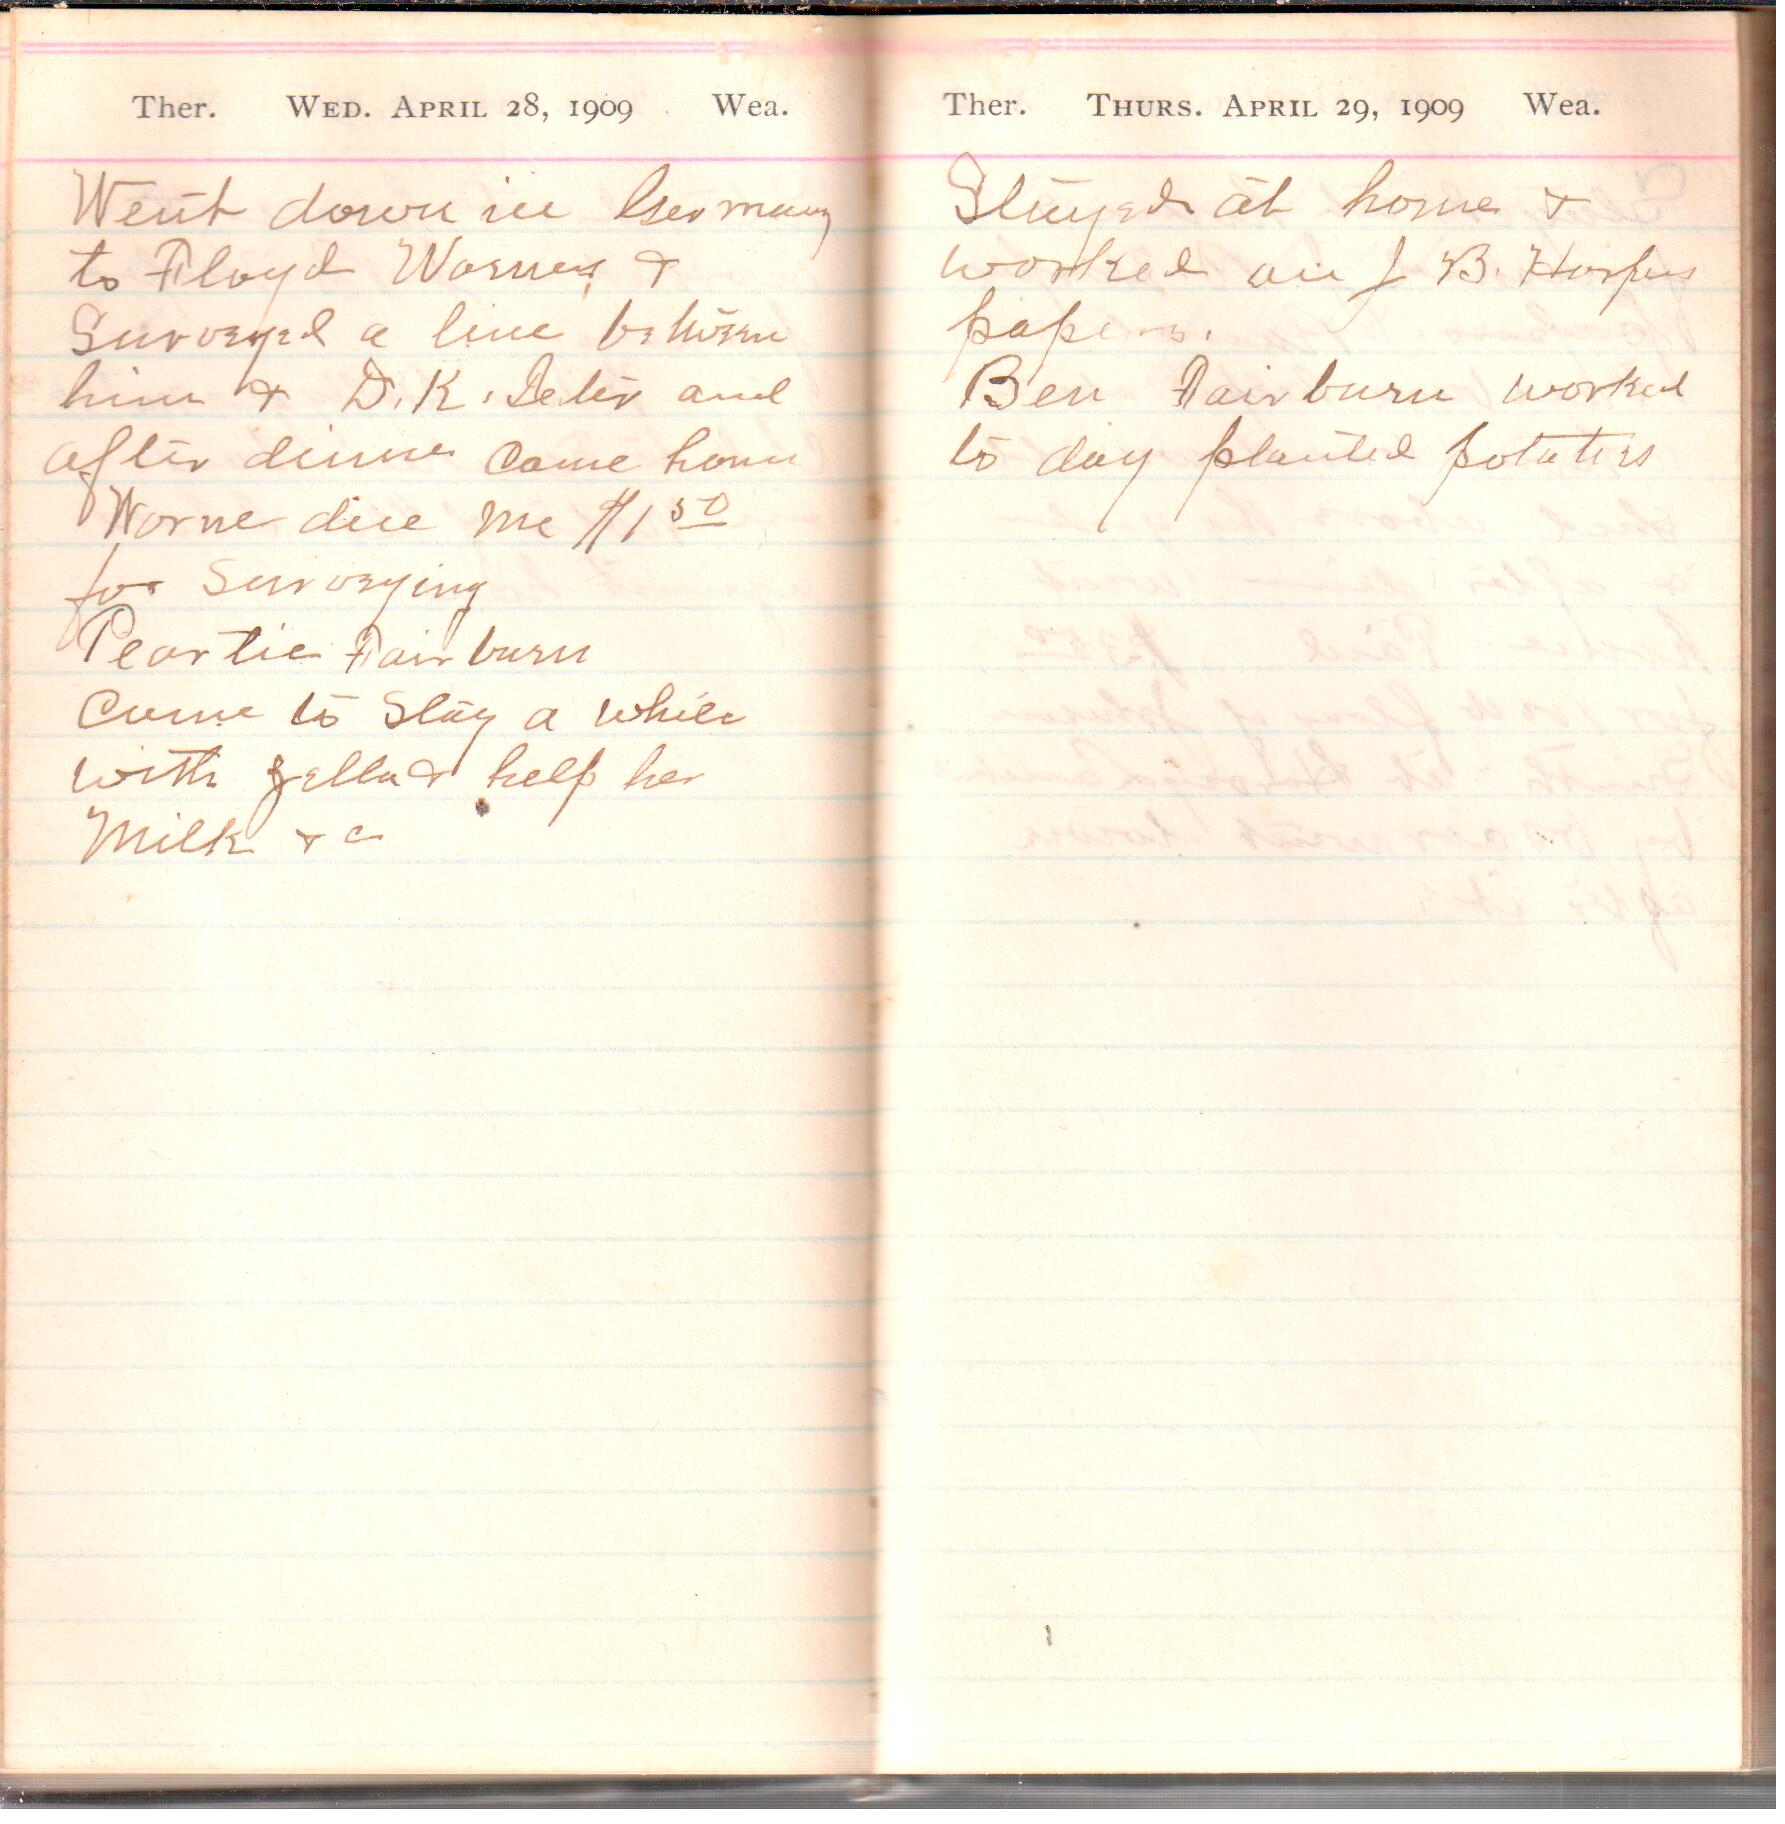 Ther. WED. APRIL 28, 1909 Wea.
Went down in Germany
to Floyd Warner &
Surveyed a line between
him & D. K. Deter and
after dinner came home
Warne due me $1 50
for Surveying
Peartie Fairburn
Came to Stay a while
with Zella & help her
Milk & c
Ther. THURS. APRIL 29, 1909 Wea.
Stayed at home &
worked on J B. Harpers
papers.
Ben Fairburn worked
to day planted potatoes